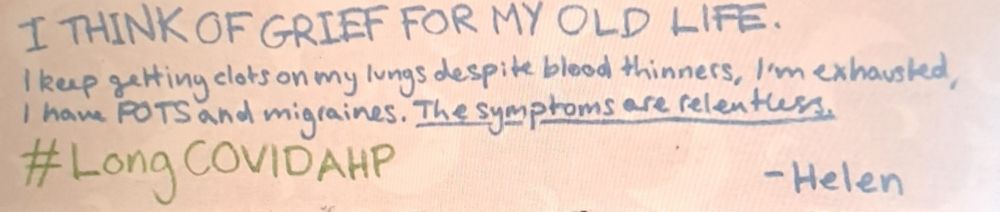 I THINK OF GRIEF FOR MY OLD LIFE.
I keep getting clots on my lungs despite blood thinners, I'm exhausted,
I have POTS and migraines. The symptoms are relentless.
#LongCOVIDAHP
-Helen